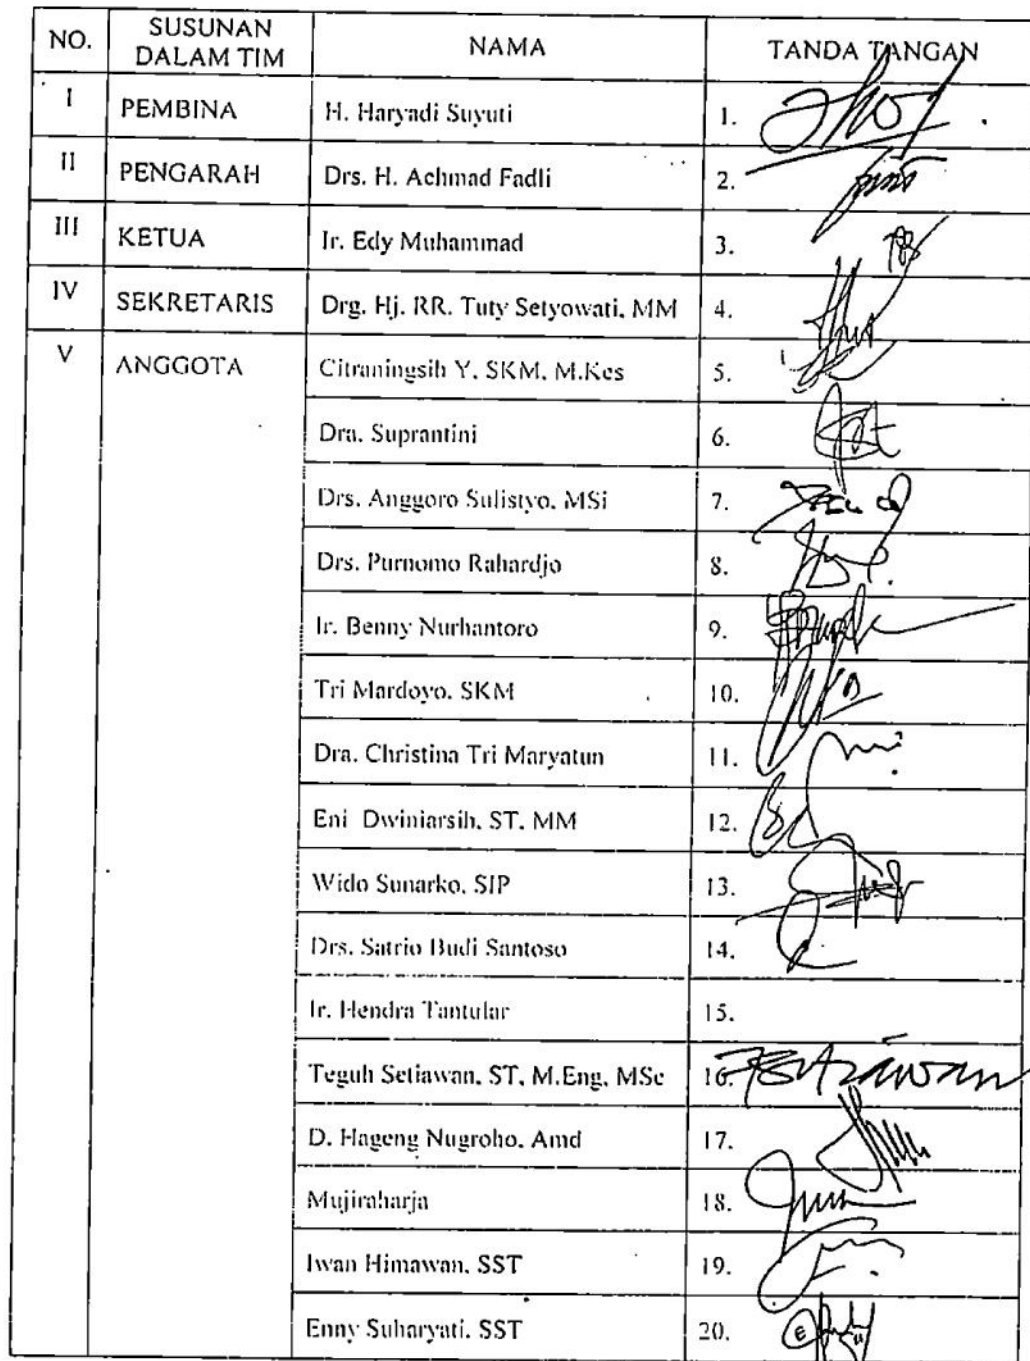 NO. SUSUNAN DALAM TIM NAMA TANDA TANGAN
I PEMBINA H. Haryadi Suyuti 1.
II PENGARAH Drs. H. Achmad Fadli 2.
III KETUA Ir. Edy Muhammad 3.
IV SEKRETARIS Drg. Hj. RR. Tuty Setyowati, MM 4.
V ANGGOTA Citraningsih Y, SKM, M.Kes 5.
Dra. Suprantini 6.
Drs. Anggoro Sulistyo, MSi 7.
Drs. Purnomo Rahardjo 8.
Ir. Benny Nurhantoro 9.
Tri Mardoyo, SKM 10.
Dra. Christina Tri Maryatun 11.
Eni Dwiniarsih, ST, MM 12.
Wido Sunarko, SIP 13.
Drs. Satrio Budi Santoso 14.
Ir. Hendra Tantular 15.
Teguh Setiawan, ST, M.Eng, MSc 16.
D. Hageng Nugroho, Amd 17.
Mujiraharja 18.
Iwan Himawan, SST 19.
Enny Suharyati, SST 20.